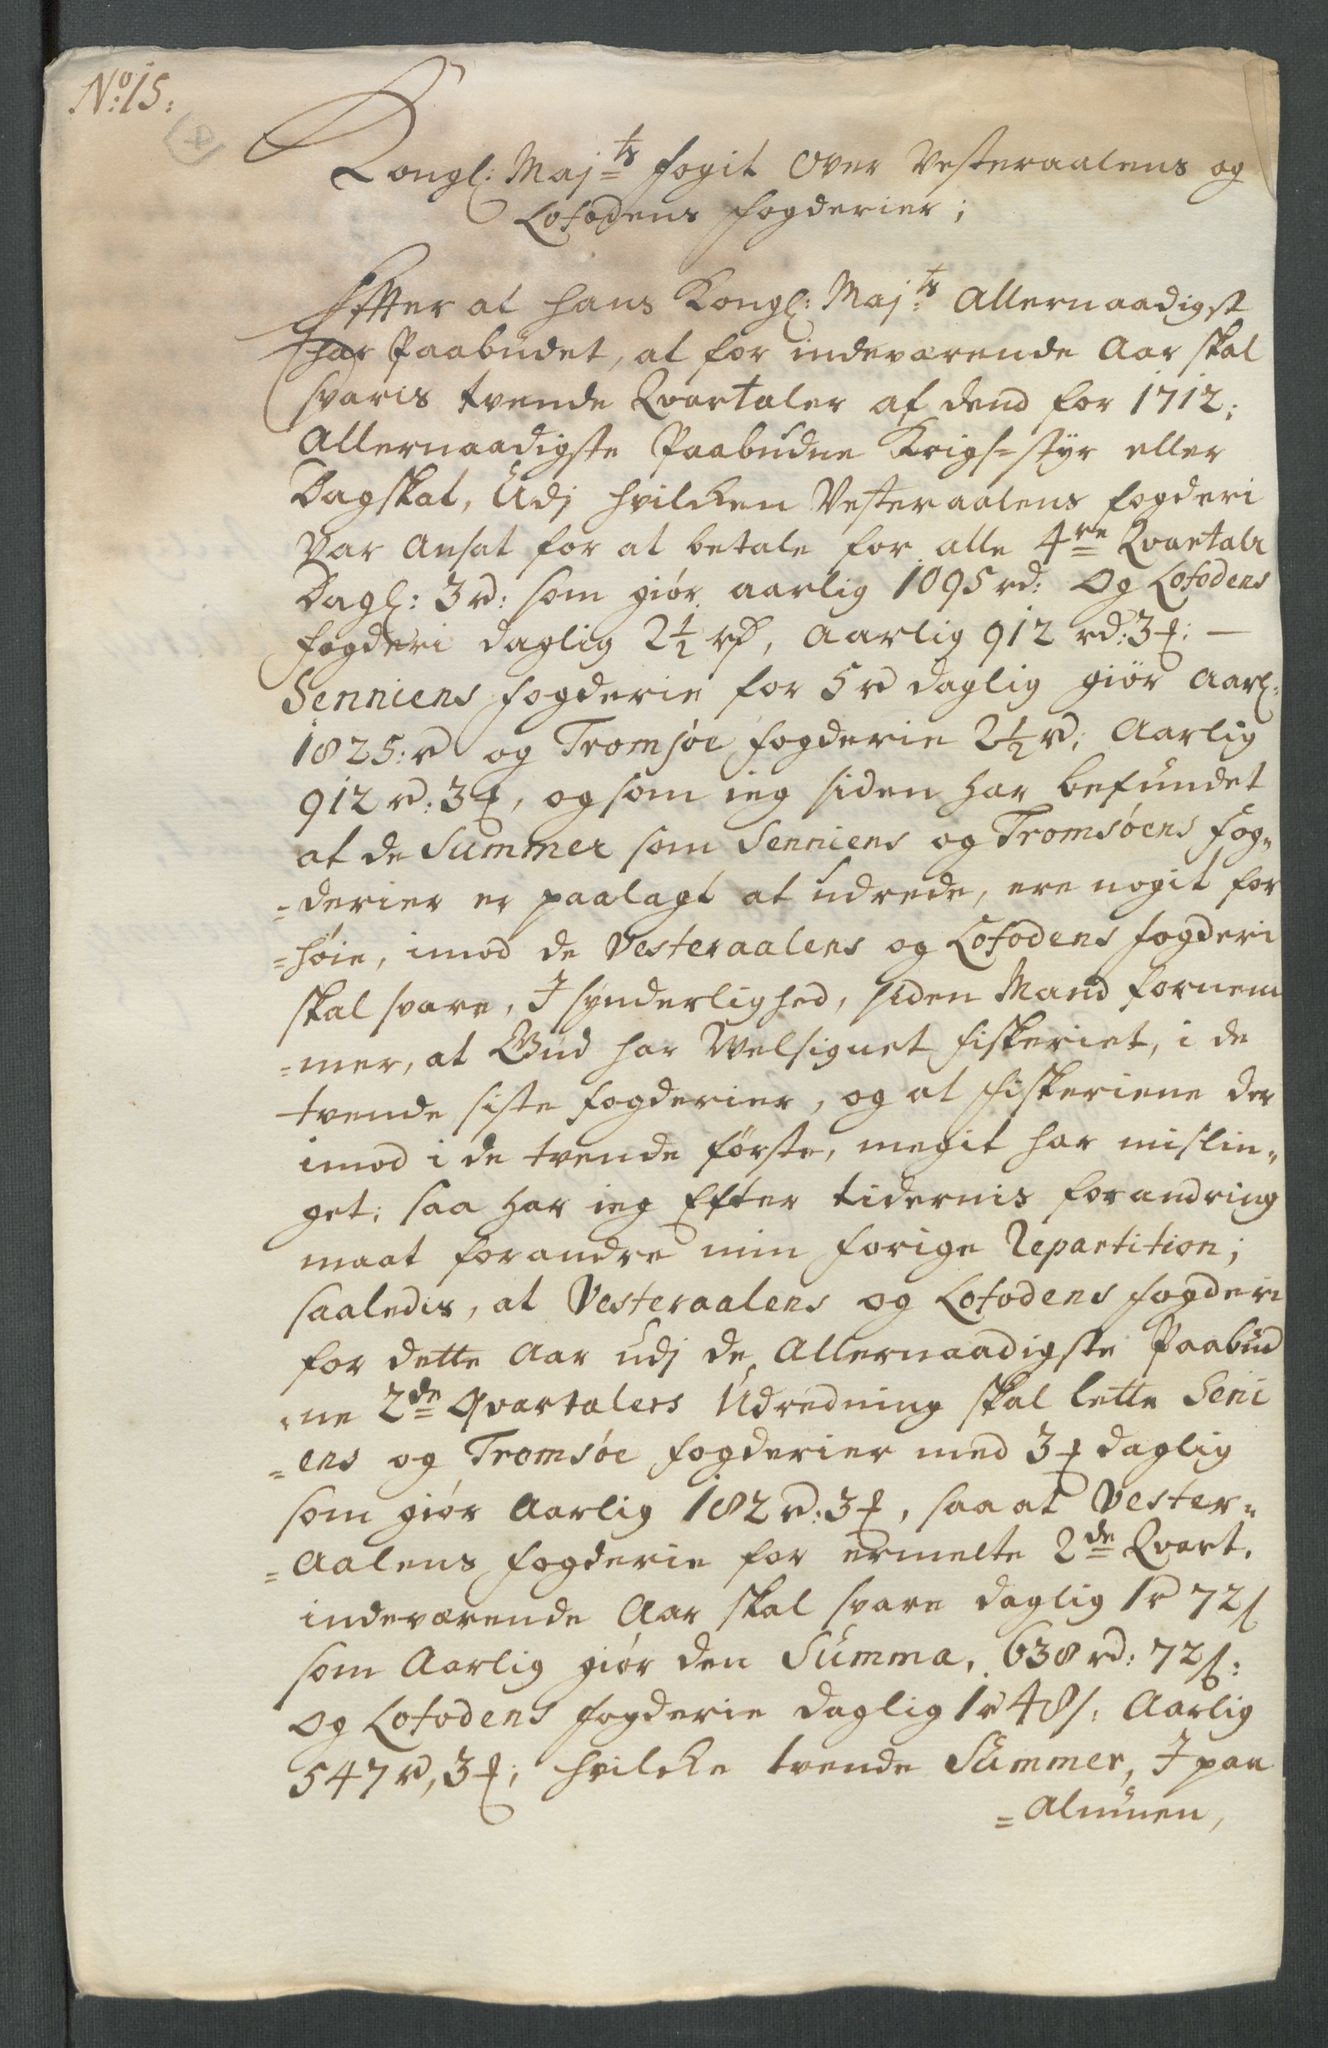 No: 15:
Kongl: Maj:ts fogit Over Vesteraalens og
Lofodens fogderier;
Effter at hans Kongl: Maj:ts Allernaadigst
har Paabudet, at for indeværende Aar skal
svaris tvende Qvartaler af dend for 1712:
Allernaadigste Paabudne Krigs=styr eller
Dagskat, Udj hvilcken Vesteraalens fogderi
Var Ansat for at betale for alle 4re Qvartaler
Dagl: 3rd: som giør aarlig 1095 rd: Og Lofodens
fogderi daglig 2½ rd, Aarlig 912 rd: 3 ƒ: —
Senniens fogderie for 5 rd daglig giør Aarl:
1825: rd og Tromsøe fogderie 2½ rd; Aarlig
912 rd: 3ƒ, og som ieg siden har befundet
at de Summer som Senniens og Tromsøens Fog=
=derier er paalagt at udrede, ere nogit for
=høie, imod de Vesteraalens og Lofodens fogderi
skal svare, I synderlighed, siden Mand fornem
=mer, at Gud har Welsignet fiskeriet, i de
tvende siste fogderier, og at fiskeriene der
imod i de tvende første, megit har mislin=
get; saa har ieg Efter tidernis forandring
maat forandre min forige Repartition;
saaledis, at Vesteraalens og Lofodens fogderi
for dette Aar udj de Allernaadigste Paabud
=ne 2de Qvartalers Udredning skal lette Seni
=ens og Tromsøe fogderier med 3ƒ daglig
som giør Aarlig 182 rd: 3ƒ, saa at Vester=
=Aalens fogderie for ermelte 2de Qvart.
indeværende Aar skal svare daglig 1 rd 72 s
som Aarlig giør den Summa, 638 rd: 72 s:
og Lofodens fogderie daglig 1 rd 48 s: Aarlig
547 rd, 3ƒ; hvilcke tvende Summer, I paa
=Almuen,